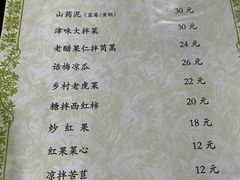 山药泥（蓝莓/黄桃） 30 元
津味大拌菜 30 元
老醋果仁拌茼蒿 24 元
话梅凉瓜 26 元
乡村老虎菜 22 元
糖拌西红柿 20 元
炒红果 18 元
红果菜心 12 元
凉拌苦苣 12 元